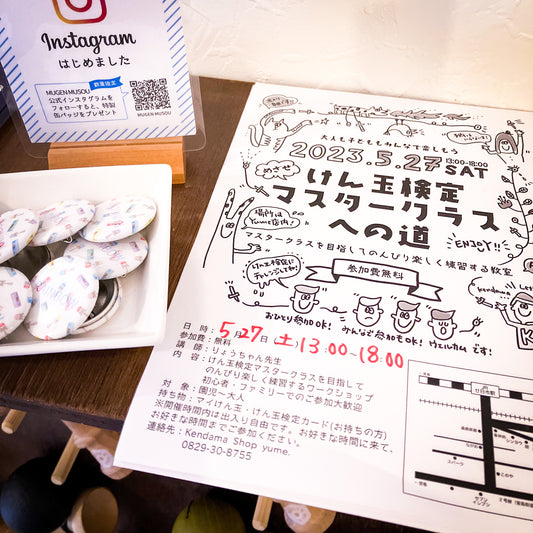 Instagram
はじめました
数量限定
MUGENMUSOU
公式インスタグラムを
フォローすると、特製
缶バッジをプレゼント
MUGEN MUSOU
大人も子どももみんなで楽しもう
2023.5.27 13:00-18:00 SAT
めざせ
けん玉検定
マスタークラス
への道
場所は
Yume店内!
ENJOY!!
マスタークラスを目指してのんびり楽しく練習する教室
けん玉検定に
チャレンジしてね!
参加費無料
kendama
おひとり参加OK! みんなで参加もOK! ウェルカムです!
日 時:5月27日 土 13:00~18:00
参加費:無料
講 師:りょうちゃん先生
内 容:けん玉検定マスタークラスを目指して
のんびり楽しく練習するワークショップ
初心者・ファミリーでのご参加大歓迎
対 象:園児~大人
持ち物:マイけん玉・けん玉検定カード(お持ちの方)
※開催時間内は出入り自由です。お好きな時間に来て、
お好きな時間までご参加ください。
連絡先:Kendama Shop yume.
0829-30-8755
廿日市駅
スパーク
セブン
イレブン
2号線